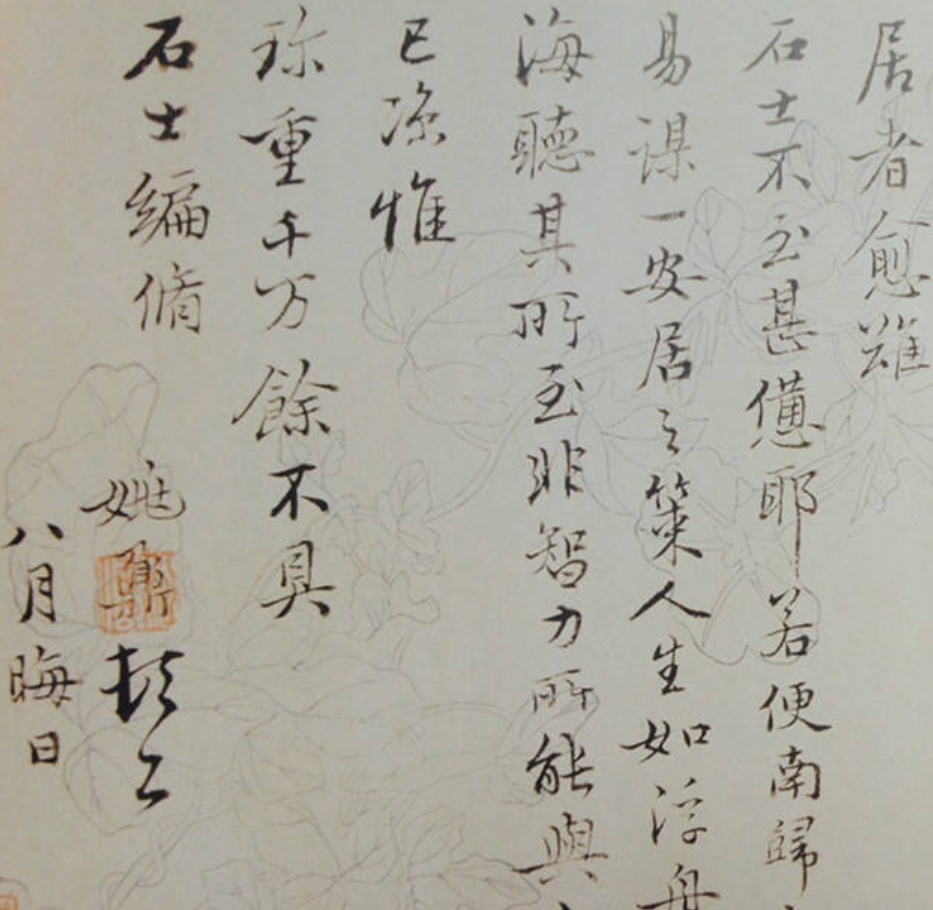 居者愈難
石士不至甚憊耶若便南歸
易謀一安居之策人生如浮舟
海聽其所至非智力所能與
已涼惟
珍重千万餘不具
石士編脩
姚鼐頓首
八月晦日